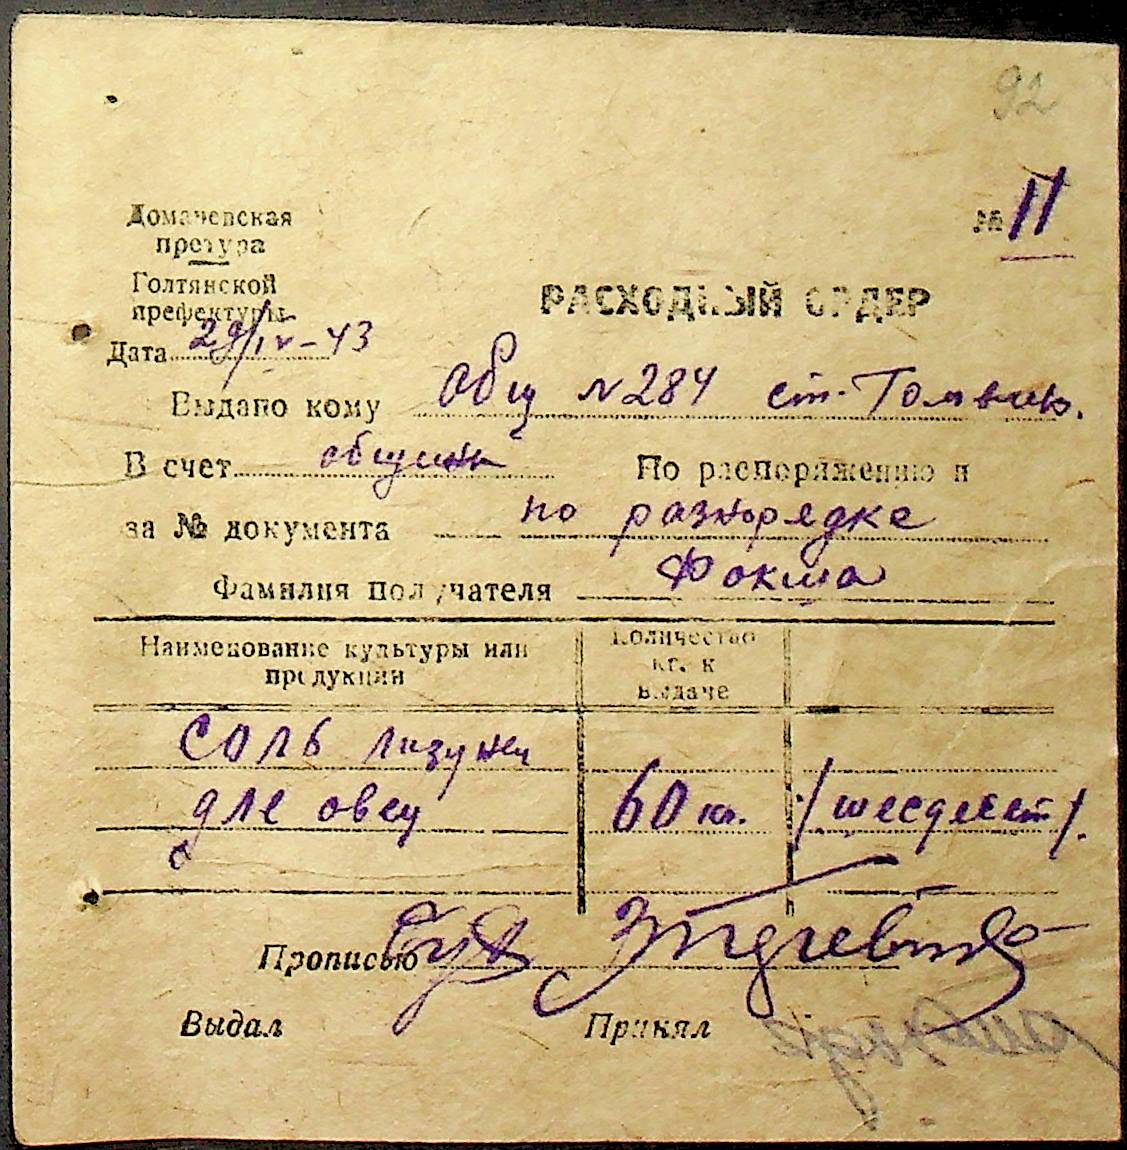 92
№ 11
Домачевская
претура
Голтянской
префектуры
Дата 29/IV-43
РАСХОДНЫЙ ОРДЕР
Выдано кому общ N284 ст.
В счет общины По распоряжению и
за № документа по разнорядке
Фамилия получателя Фокша
Наименование культуры или
продукции
Количество
кг. к
выдаче
соль лизунец
дле овец 60 кг. /шесдесят/.
Прописью
Выдал Принял